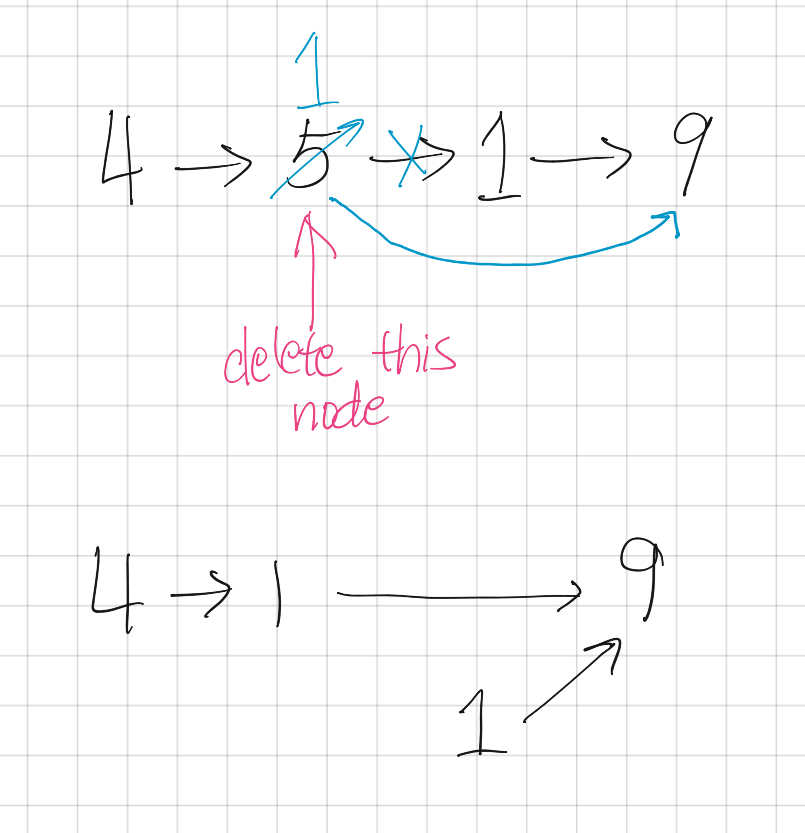 1
4 → 5 → 1 → 9
delete this
node
4 → 1 → 9
1